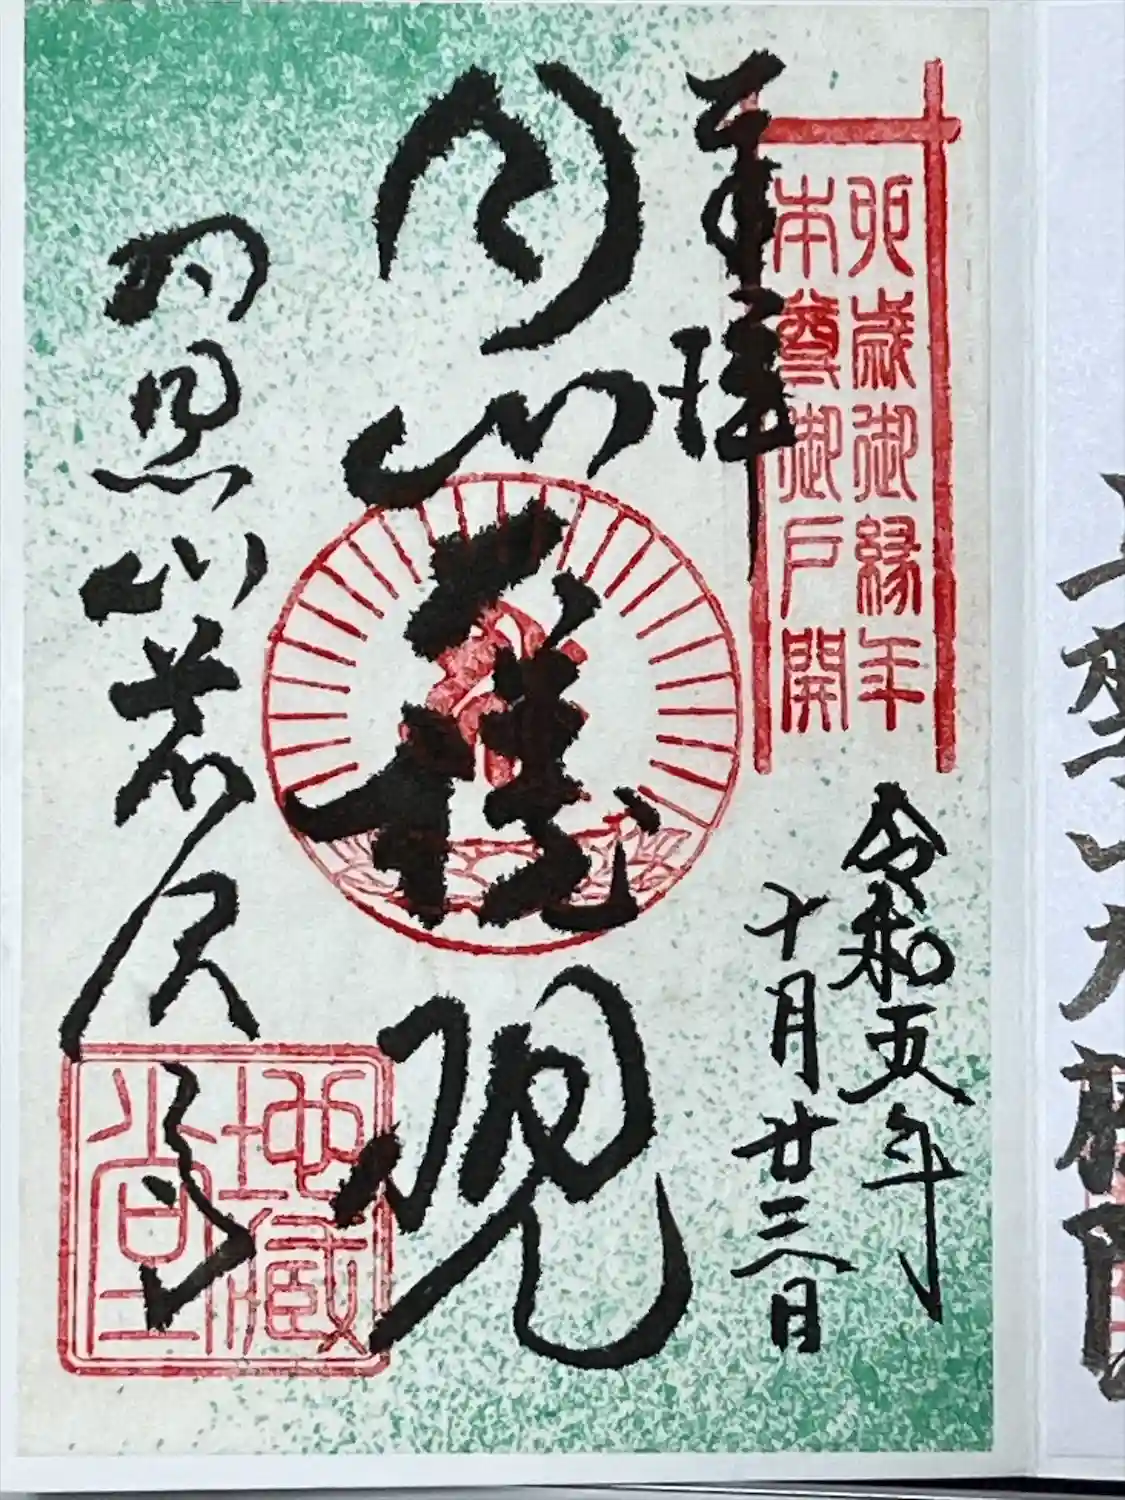 奉拝
卯歳御縁年
本尊御戸開
令和五年
十月廿三日
月山権現
羽黒山荒沢寺
地蔵堂